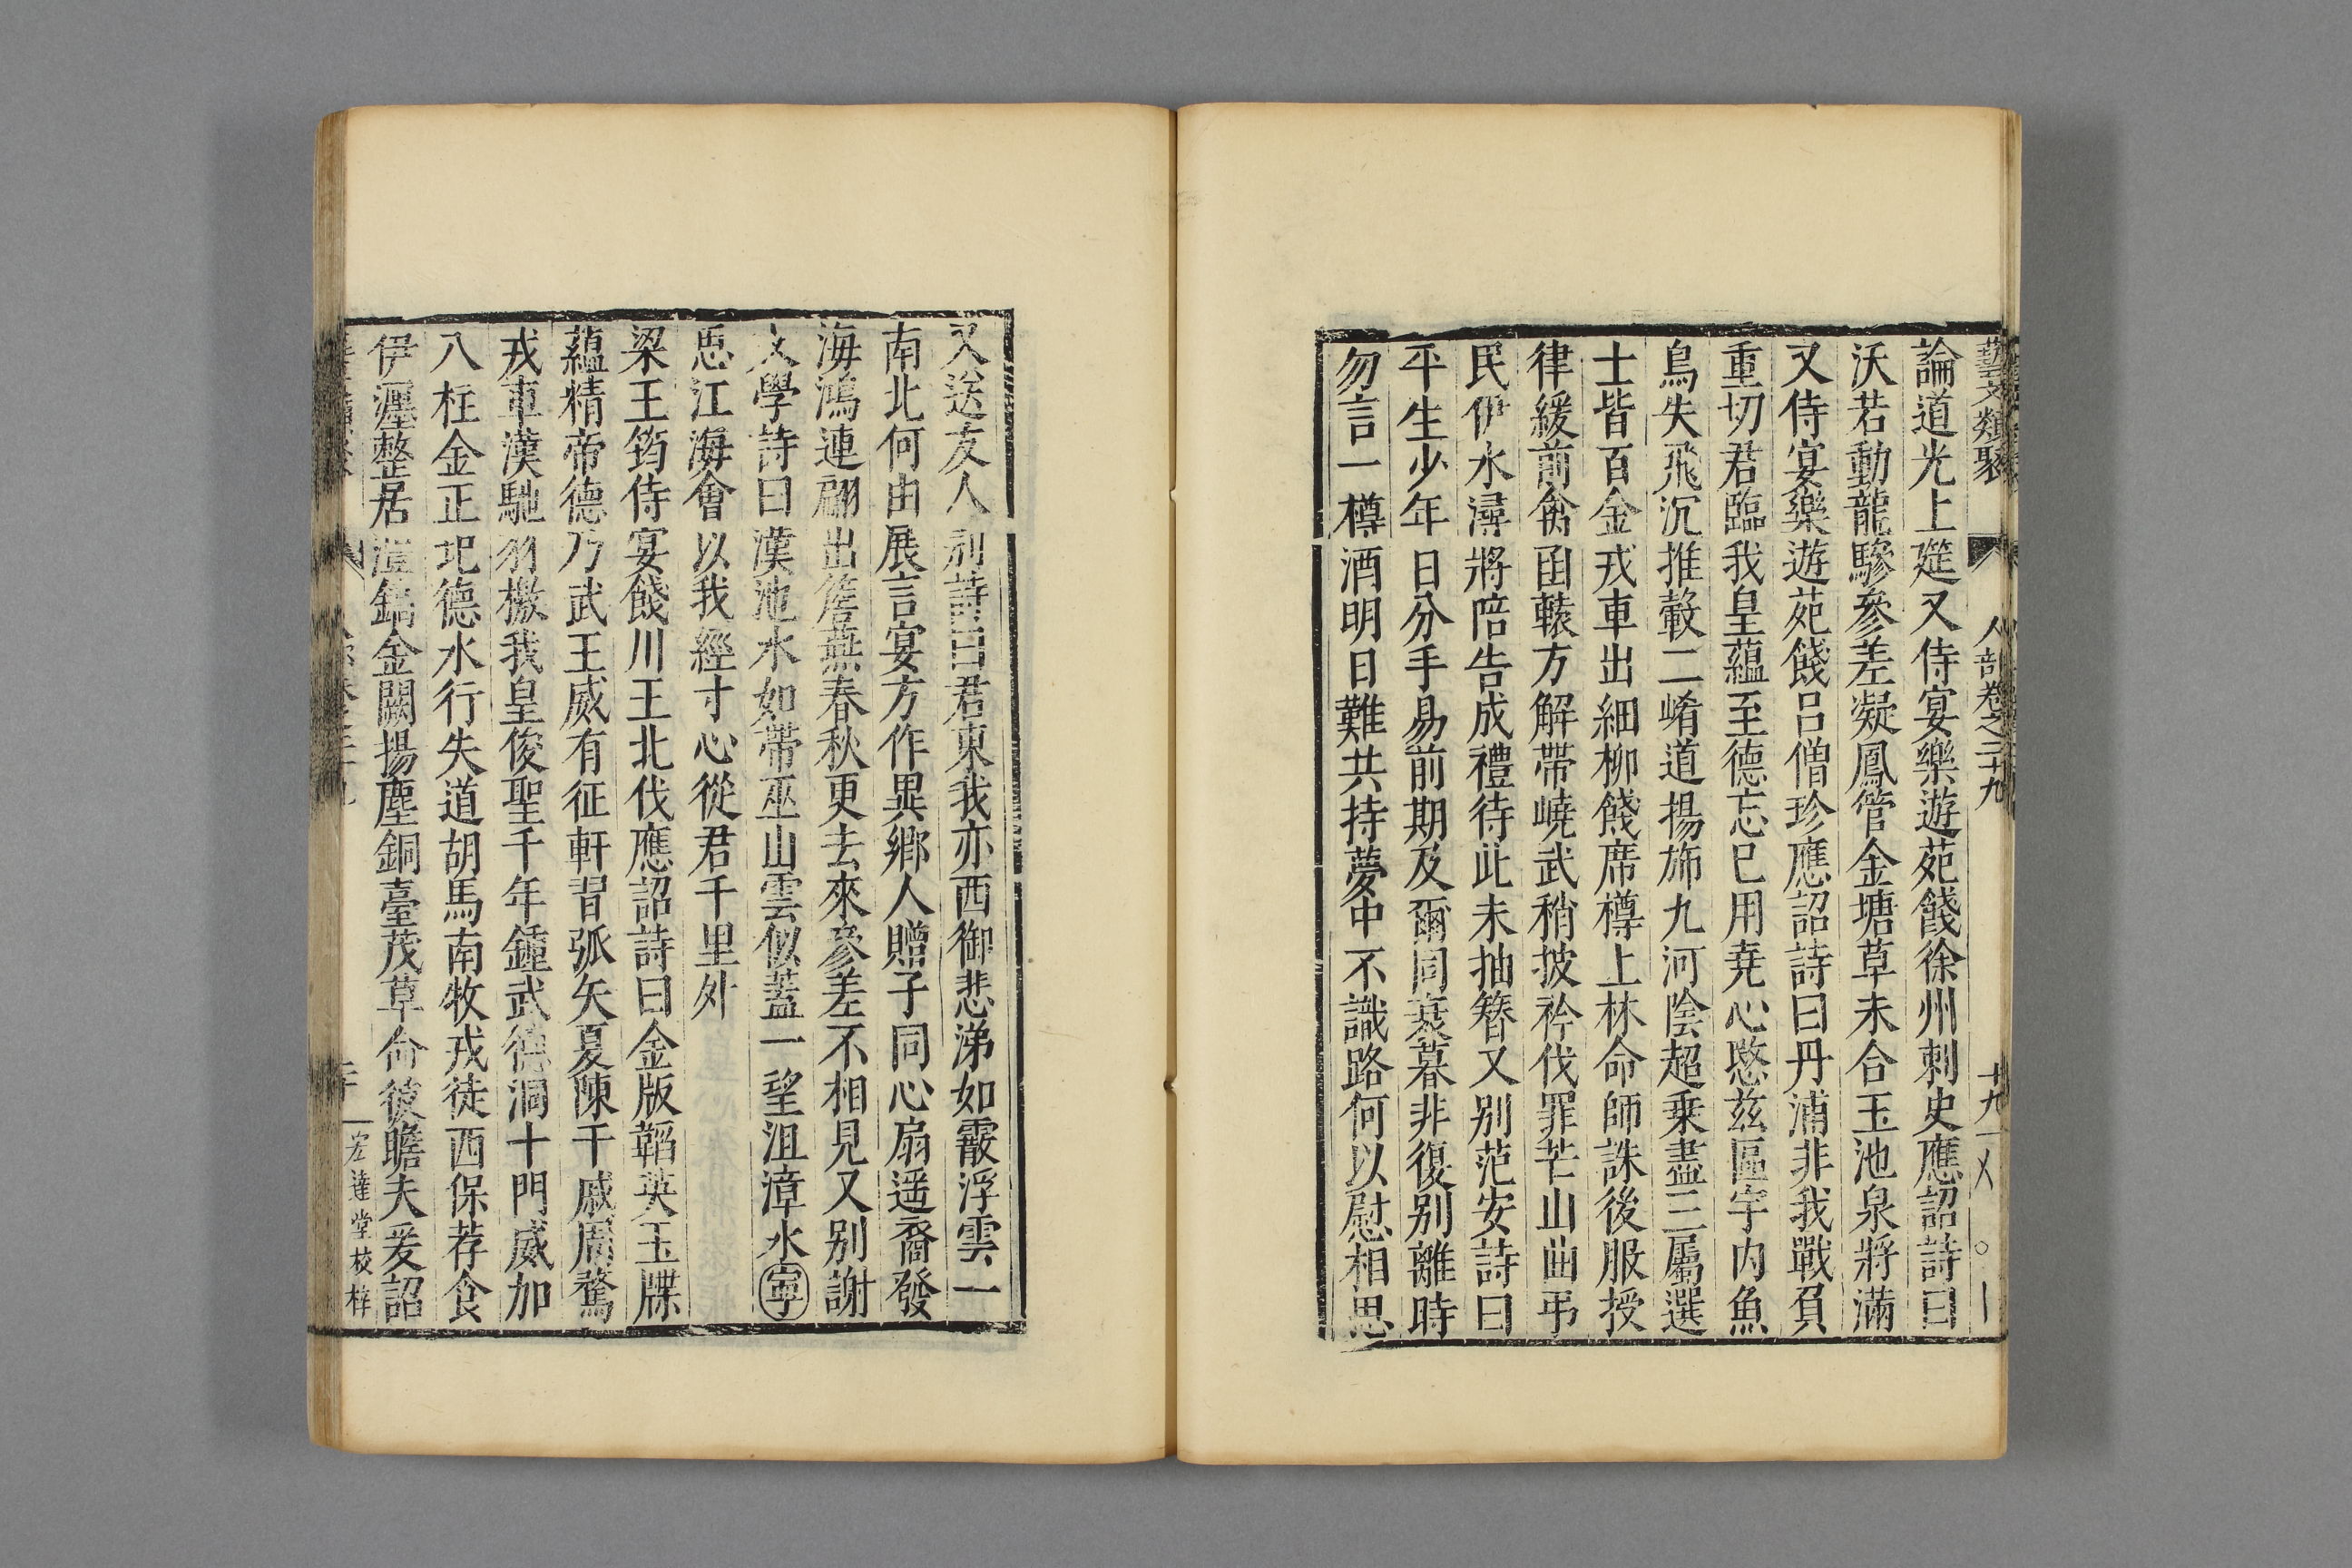 藝文類聚 人部卷之二十九 十九
論道光上筵又侍宴樂遊苑餞徐州刺史應詔詩曰
沃若動龍驂參差凝鳳管金塘草未合玉池泉將滿
又侍宴樂遊苑餞呂僧珍應詔詩曰丹浦非我戰負
重切君臨我皇蘊至德忘已用堯心愍茲區宇内魚
鳥失飛沉推轂二崤道揚斾九河陰超乗盡三屬選
士皆百金戎車出細柳餞席樽上林命師誅後服授
律緩前禽函轅方解帶嶢武稍披衿伐罪芒山曲弔
民伊水潯將陪告成禮待此未抽簪又别范安詩曰
平生少年日分手易前期及爾同衰暮非復别離時
勿言一樽酒明日難共持夢中不識路何以慰相思
又送友人别詩曰君東我亦西御悲涕如霰浮雲一
南北何由展言宴方作異鄉人贈子同心扇遥裔發
海鴻連翩出簷燕春秋更去來參差不相見又别謝
文學詩曰漢池水如帶巫山雲似蓋一望沮漳水寧
思江海會以我經寸心從君千里外
梁王筠侍宴餞川王北伐應詔詩曰金版韜英玉牒
蘊精帝德乃武王威有征軒習弧矢夏陳干戚周驚
戎車漢馳羽檄我皇俊聖千年鍾武德洞十門威加
八柱金正圯德水行失道胡馬南牧戎徒西保荐食
伊瀍整居澧鎬金闕揚塵銅臺茂草命彼瞻夫爰詔
宏達堂校梓